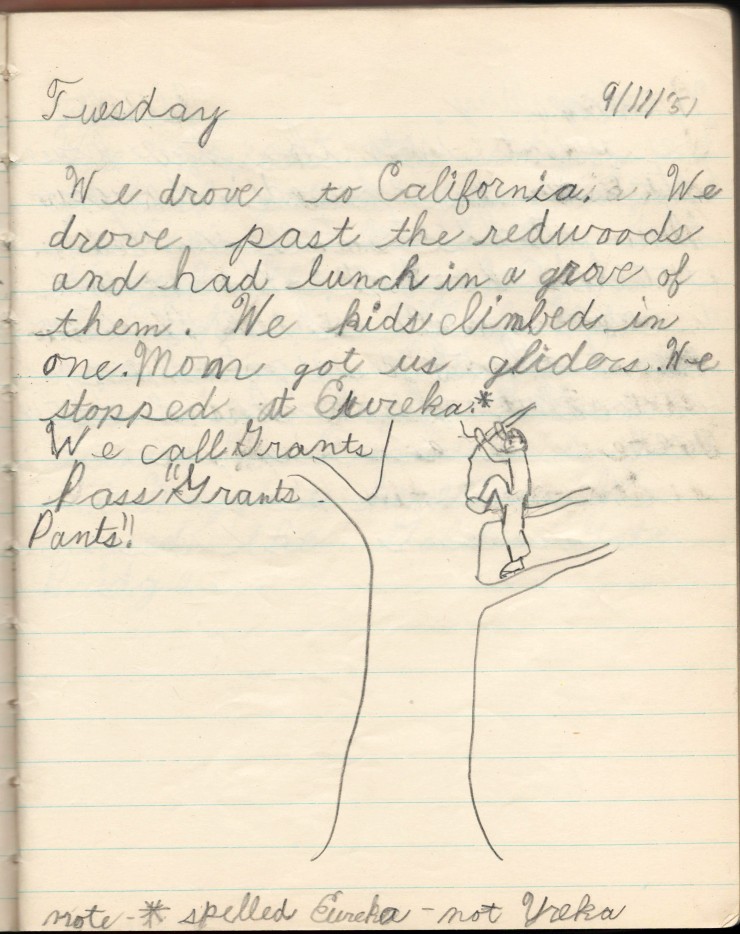 Tuesday 9/11/'51
We drove to California. We
drove past the redwoods
and had lunch in a grove of
them. We kids climbed in
one. Mom got us gliders. We
stopped at Eureka.*
We call Grants
Pass "Grants
Pants"!
note - * spelled Eureka - not Yreka